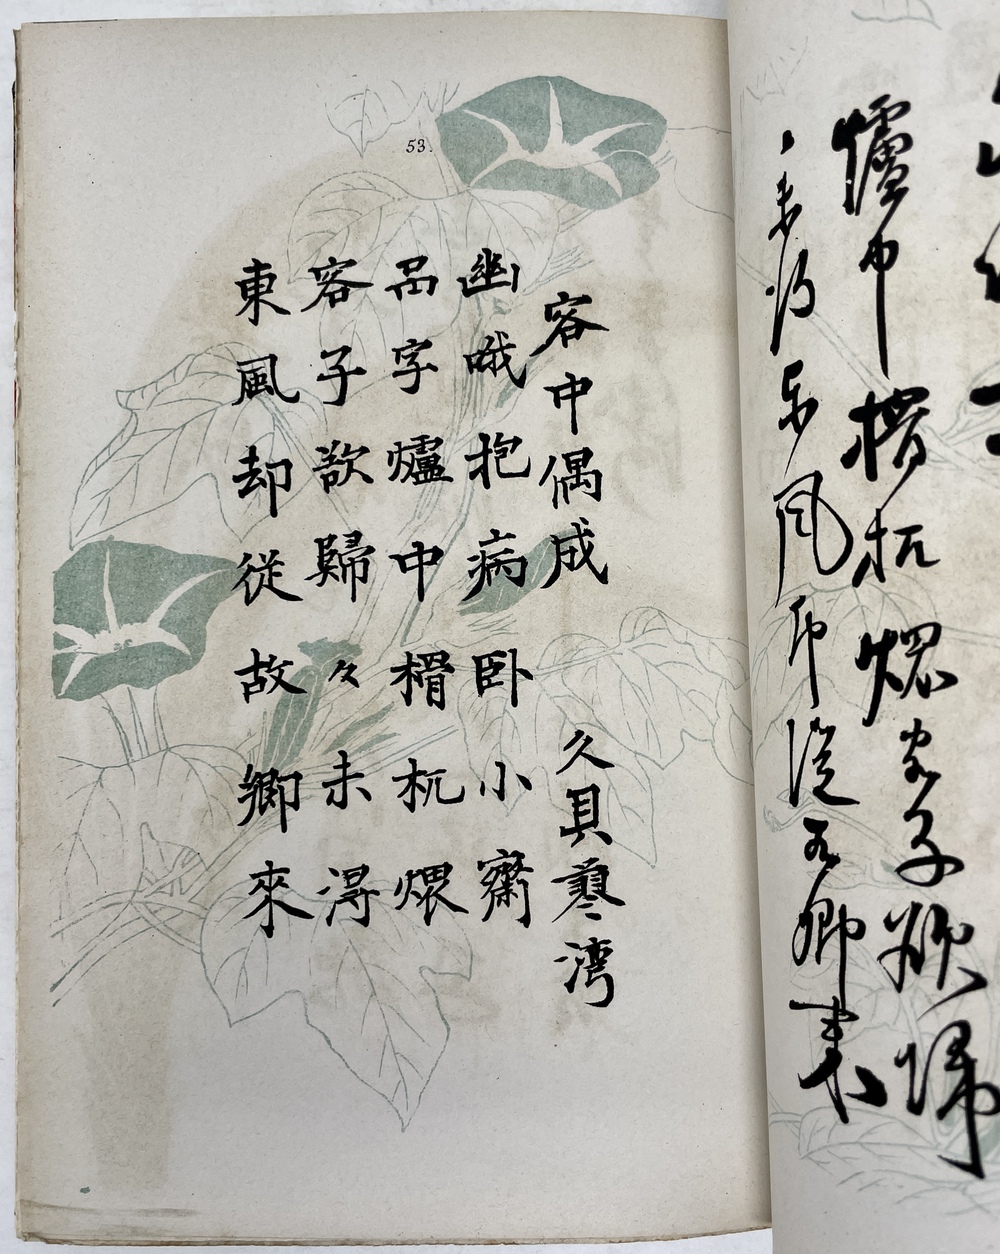 爐中榾杌煨客子欲歸
々未得東風却從故鄉来
53.
客中偶成 久貝蓼湾
幽哦抱病臥小齋
品字爐中榾杌煨
客子欲歸々未得
東風却從故鄉來